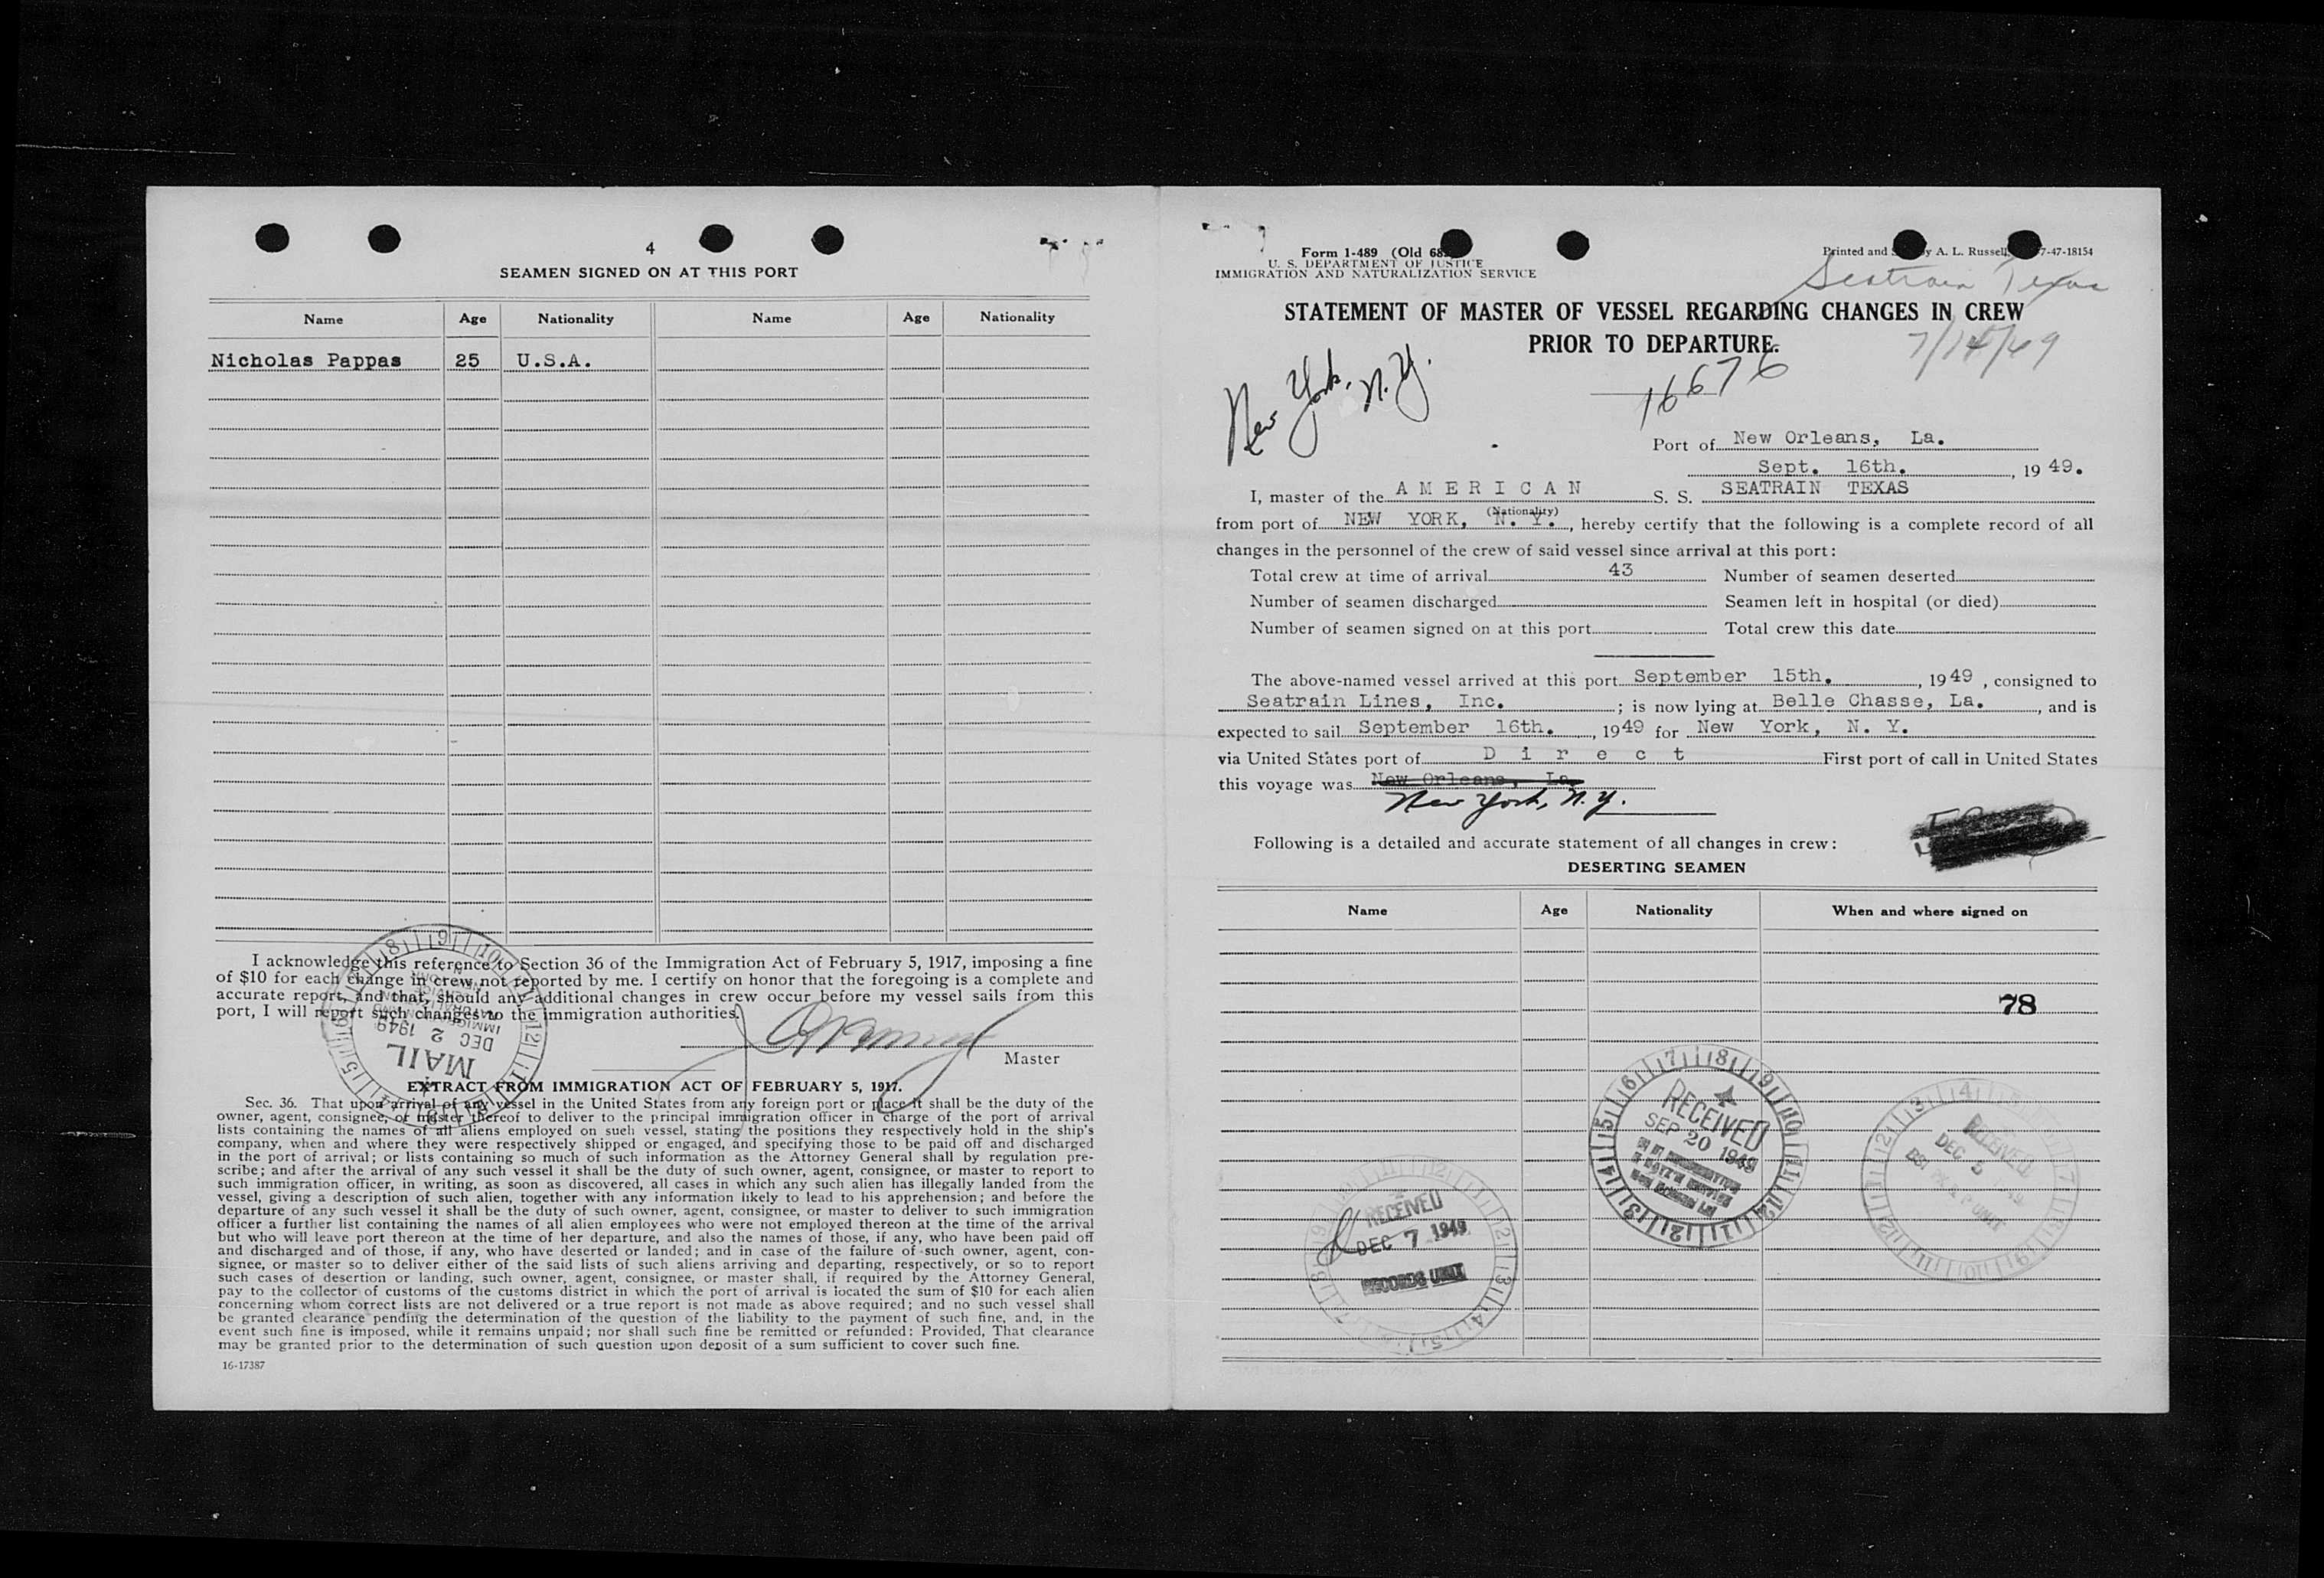 4
SEAMEN SIGNED ON AT THIS PORT
Name Age Nationality Name Age Nationality
Nicholas Pappas 25 U.S.A.
I acknowledge this reference to Section 36 of the Immigration Act of February 5, 1917, imposing a fine
of $10 for each change in crew not reported by me. I certify on honor that the foregoing is a complete and
accurate report, and that, should any additional changes in crew occur before my vessel sails from this
port, I will report such changes to the immigration authorities.
Master
MAIL
DEC 2 1949
EXTRACT FROM IMMIGRATION ACT OF FEBRUARY 5, 1917.
Sec. 36. That upon arrival of any vessel in the United States from any foreign port or place it shall be the duty of the
owner, agent, consignee, or master thereof to deliver to the principal immigration officer in charge of the port of arrival
lists containing the names of all aliens employed on such vessel, stating the positions they respectively hold in the ship's
company, when and where they were respectively shipped or engaged, and specifying those to be paid off and discharged
in the port of arrival; or lists containing so much of such information as the Attorney General shall by regulation pre-
scribe; and after the arrival of any such vessel it shall be the duty of such owner, agent, consignee, or master to report to
such immigration officer, in writing, as soon as discovered, all cases in which any such alien has illegally landed from the
vessel, giving a description of such alien, together with any information likely to lead to his apprehension; and before the
departure of any such vessel it shall be the duty of such owner, agent, consignee, or master to deliver to such immigration
officer a further list containing the names of all alien employees who were not employed thereon at the time of the arrival
but who will leave port thereon at the time of her departure, and also the names of those, if any, who have been paid off
and discharged and of those, if any, who have deserted or landed; and in case of the failure of such owner, agent, con-
signee, or master so to deliver either of the said lists of such aliens arriving and departing, respectively, or so to report
such cases of desertion or landing, such owner, agent, consignee, or master shall, if required by the Attorney General,
pay to the collector of customs of the customs district in which the port of arrival is located the sum of $10 for each alien
concerning whom correct lists are not delivered or a true report is not made as above required; and no such vessel shall
be granted clearance pending the determination of the question of the liability to the payment of such fine, and, in the
event such fine is imposed, while it remains unpaid; nor shall such fine be remitted or refunded: Provided, That clearance
may be granted prior to the determination of such question upon deposit of a sum sufficient to cover such fine.
16-17387
Form I-489 (Old 68
U. S. DEPARTMENT OF JUSTICE
IMMIGRATION AND NATURALIZATION SERVICE
Printed and by A. L. Russell, 7-47-18154
Seatrain Texas
STATEMENT OF MASTER OF VESSEL REGARDING CHANGES IN CREW
PRIOR TO DEPARTURE.
7/14/49
New York, N.Y.
16676
Port of New Orleans, La.
Sept. 16th. , 1949.
I, master of the AMERICAN S. S. SEATRAIN TEXAS
(Nationality)
from port of NEW YORK, N. Y. , hereby certify that the following is a complete record of all
changes in the personnel of the crew of said vessel since arrival at this port:
Total crew at time of arrival 43 Number of seamen deserted
Number of seamen discharged Seamen left in hospital (or died)
Number of seamen signed on at this port Total crew this date
The above-named vessel arrived at this port September 15th. , 1949 , consigned to
Seatrain Lines, Inc. ; is now lying at Belle Chasse, La. , and is
expected to sail September 16th. , 1949 for New York, N. Y.
via United States port of Direct First port of call in United States
this voyage was New Orleans, La.
New York, N.Y.
Following is a detailed and accurate statement of all changes in crew:
DESERTING SEAMEN
Name Age Nationality When and where signed on
78
RECEIVED
SEP 20 1949
RECEIVED
DEC 5 1949
RECEIVED
DEC 7 1949
RECORDS UNIT